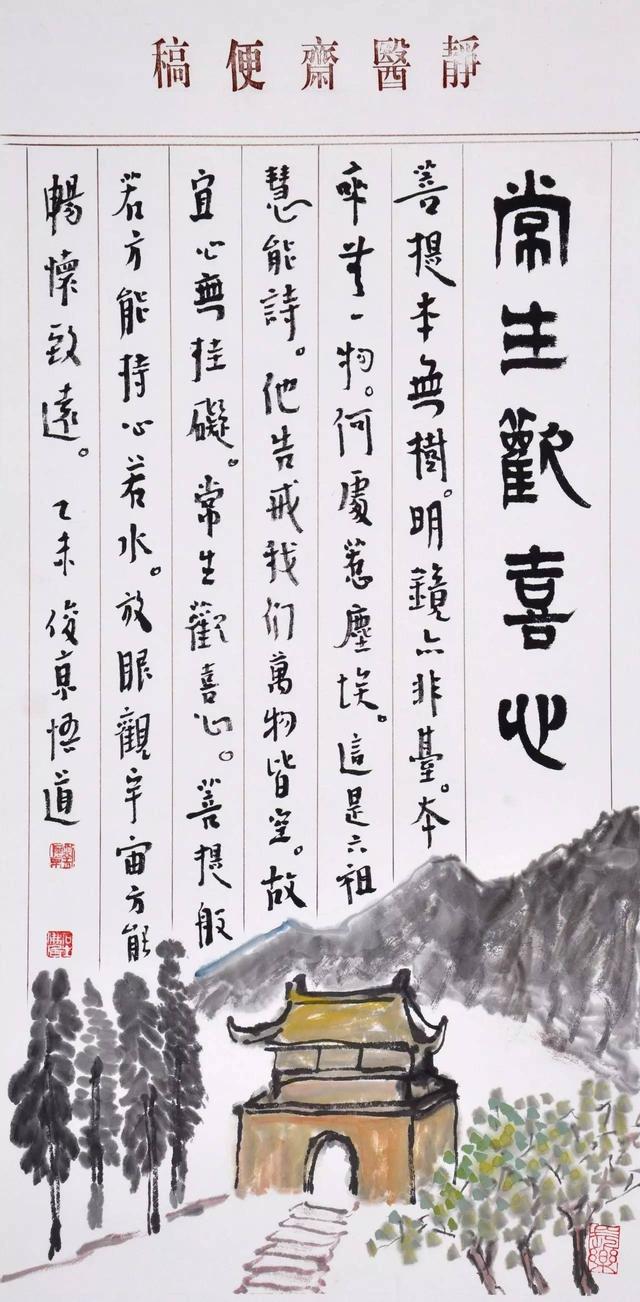 靜醫齋便稿
常生歡喜心
菩提本無樹。明鏡亦非臺。本
來無一物。何處惹塵埃。這是六祖
慧能詩。他告戒我们萬物皆空。故
宜心無挂礙。常生歡喜心。菩提般
若方能持心若水。放眼觀宇宙方能
暢懷致遠。乙未俊京悟道